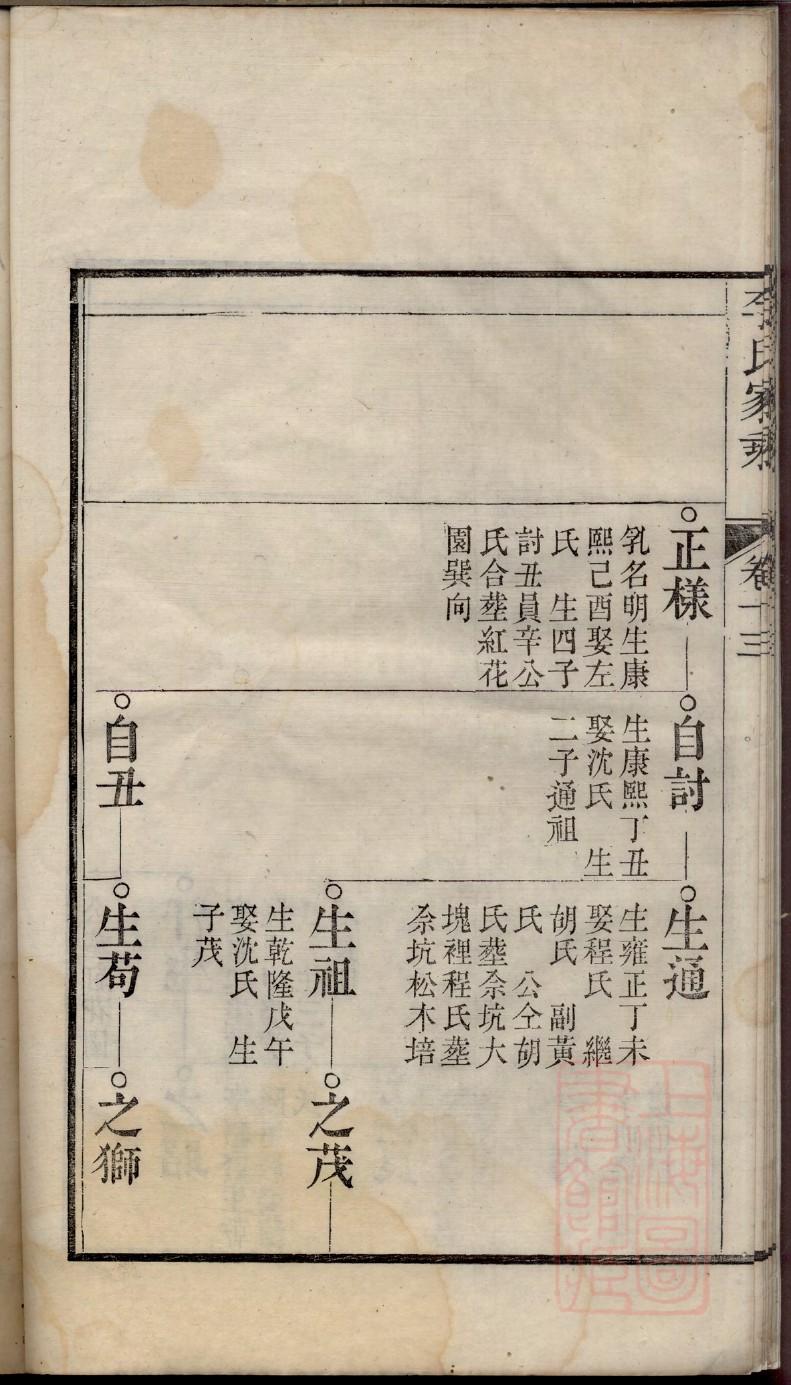 李氏家乘
卷十三
正樣
乳名明生康
熙己酉娶左
氏　生四子
討丑員辛公
氏合塟紅花
園巽向
自討
生康熙丁丑
娶沈氏　生
二子通祖
生通
生雍正丁未
娶程氏　繼
胡氏　副黃
氏　公仝胡
氏塟佘坑大
塊裡程氏塟
佘坑松木培
生祖
生乾隆戊午
娶沈氏　生
子茂
之茂
自丑
生苟
之獅